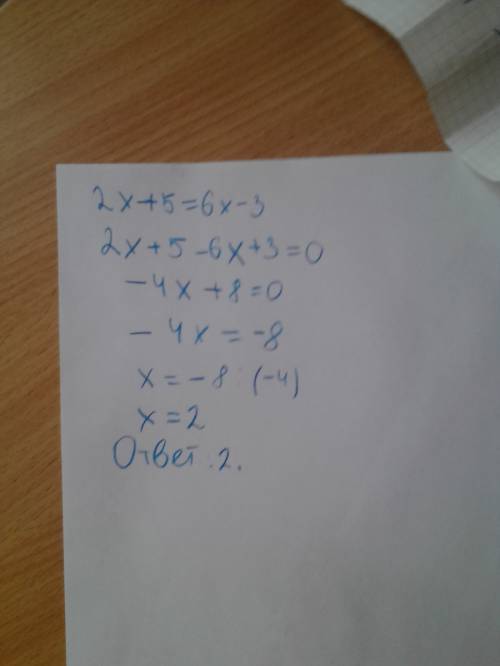 2x+5=6x-3
2x+5-6x+3=0
-4x+8=0
-4x=-8
x=-8:(-4)
x=2
Ответ:2.